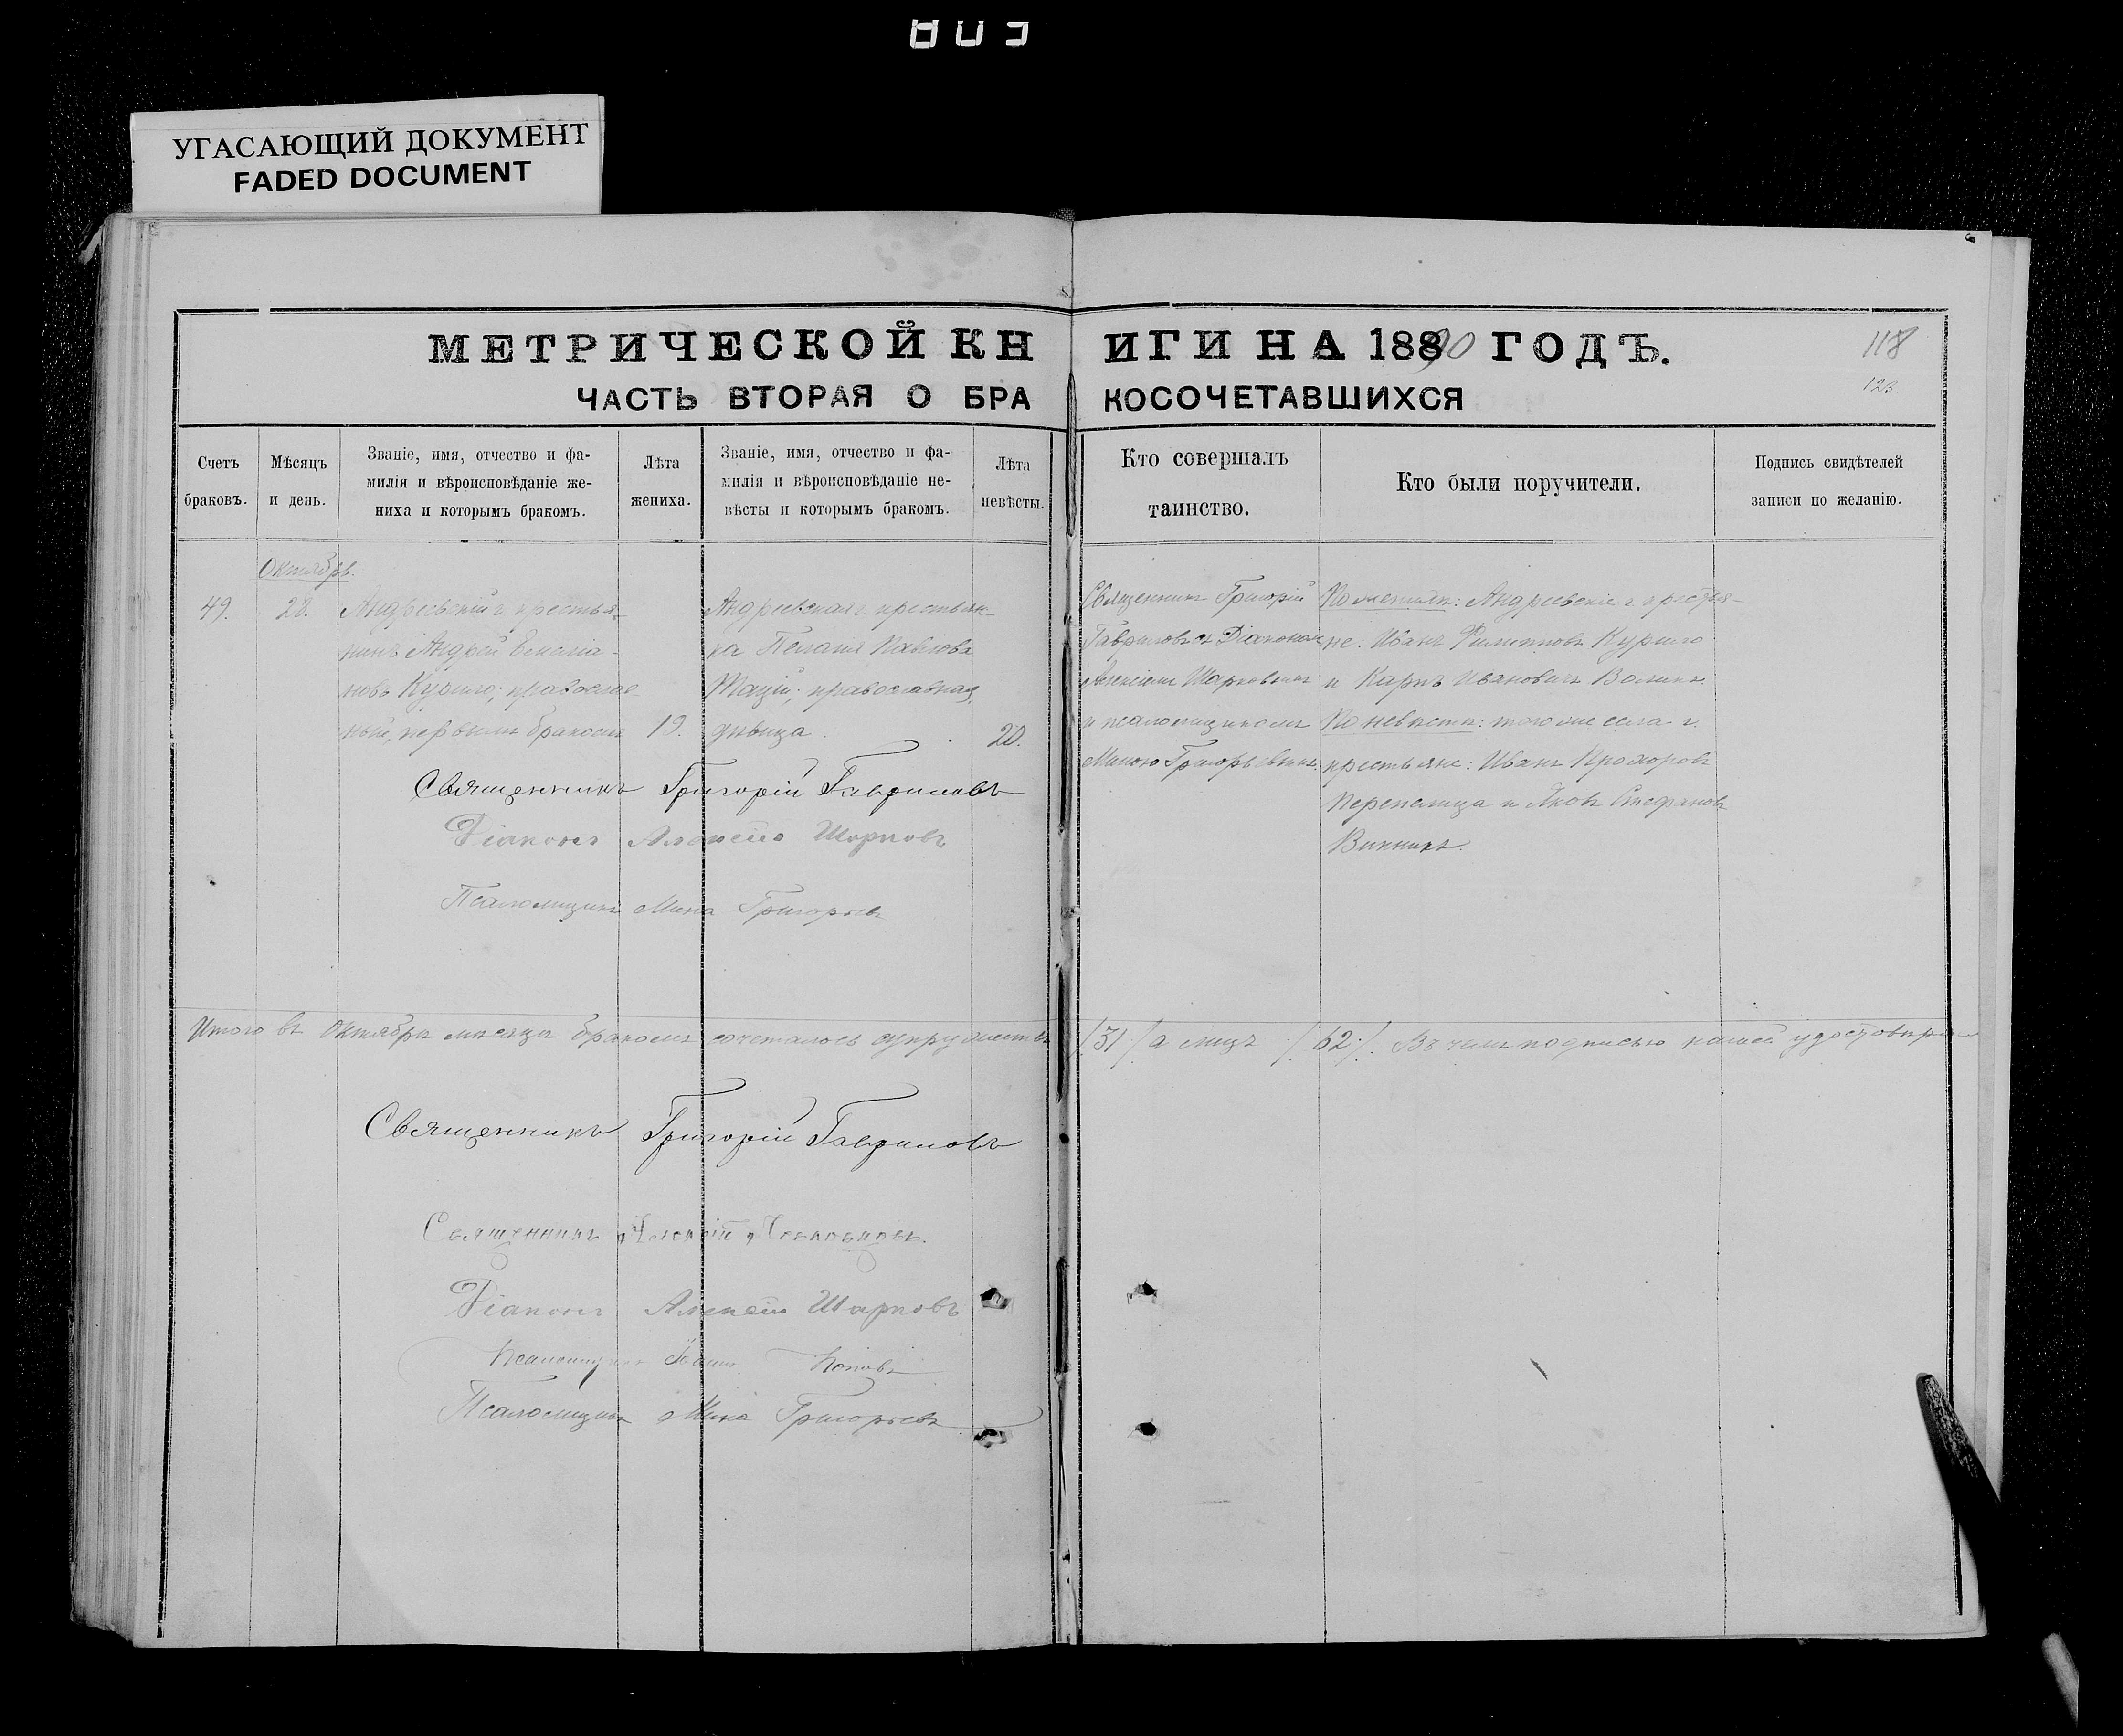 803
УГАСАЮЩИЙ ДОКУМЕНТ
FADED DOCUMENT
МЕТРИЧЕСКОЙ КНИГИ НА 1890 ГОДЪ.
118
ЧАСТЬ ВТОРАЯ О БРАКОСОЧЕТАВШИХСЯ
123
Счетъ
браковъ.
Мѣсяцъ
и день.
Званіе, имя, отчество и фа-
милія и вѣроисповѣданіе же-
ниха и которымъ бракомъ.
Лѣта
жениха.
Званіе, имя, отчество и фа-
милія и вѣроисповѣданіе не-
вѣсты и которымъ бракомъ.
Лѣта
невѣсты.
Кто совершалъ
таинство.
Кто были поручители.
Подпись свидѣтелей
записи по желанію.
Октябрь.
49.
28.
Андреевскій крестья-
нинъ Андрей Емелiа-
новъ Курило; православ-
ный, первымъ бракомъ
19.
Андреевская крестьян-
ка Пелагія Павлова
православная,
дѣвица.
20.
Священникъ Григорій
Гавриловъ съ Діакономъ
Алексѣемъ Шарковымъ
и псаломщикомъ
Миною Григорьевымъ.
По женихѣ: Андреевскіе крестья-
не: Иванъ Филипповъ Курило
и Карпъ Ивановичъ
По невѣстѣ: того же села
крестьяне: Иванъ Прохоровъ
Перепелица и Яковъ Стефановъ
Винникъ.
Священникъ Григорій Гавриловъ
Діаконъ Алексѣй Шарковъ
Псаломщикъ Мина Григорьевъ
Итого въ Октябрѣ мѣсяцѣ бракомъ сочеталось супружествъ /31/ а лицъ /62/. Въ чемъ подписью нашей удостовѣряемъ
Священникъ Григорій Гавриловъ
Священникъ Алексѣй
Діаконъ Алексѣй Шарковъ
Псаломщикъ Поповъ
Псаломщикъ Мина Григорьевъ